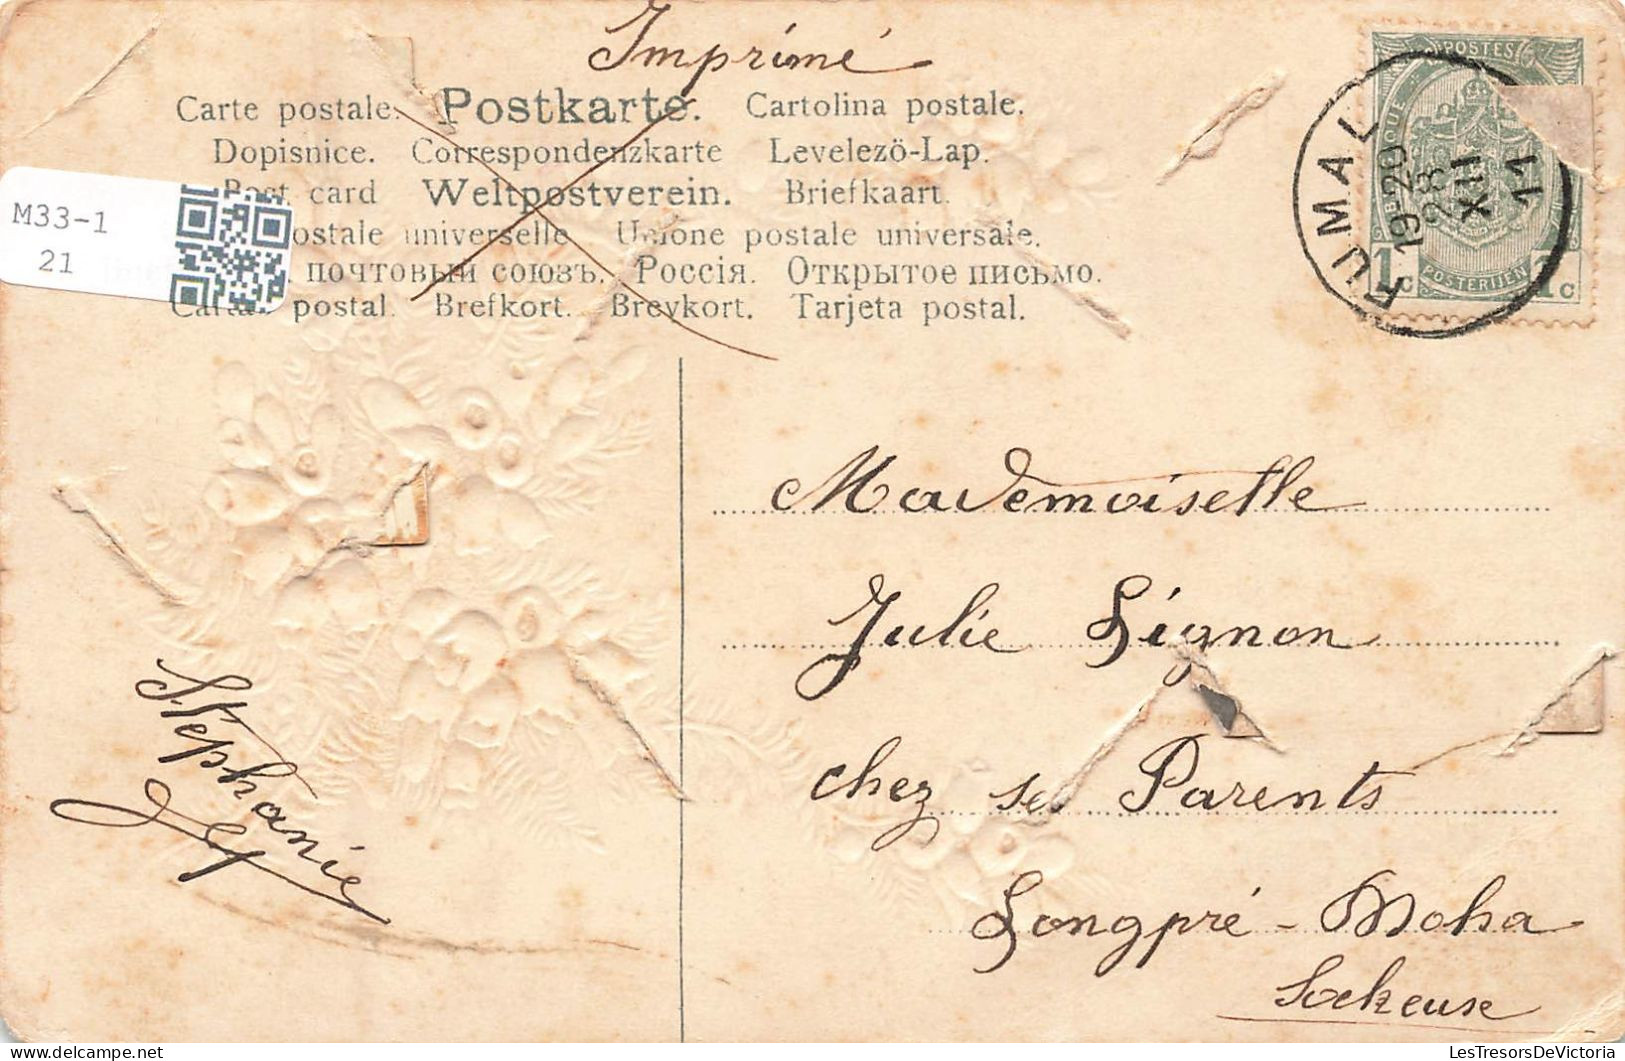 Imprimé
Carte postale. Postkarte. Cartolina postale.
Dopisnice. Correspondenzkarte Levelezö-Lap.
Post card Weltpostverein. Briefkaart.
M33-1
21
ostale universelle Unione postale universale.
почтовый союзъ. Россія. Открытое письмо.
Carta postal. Brefkort. Brevkort. Tarjeta postal.
POSTES
BELGIQUE
POSTERIJEN
1 c 1 c
FUMAL
19-20
28
XII
11
Mademoiselle
Julie Lignon
chez ses Parents
Longpré - Moha
Stéphanie
LesTresorsDeVictoria